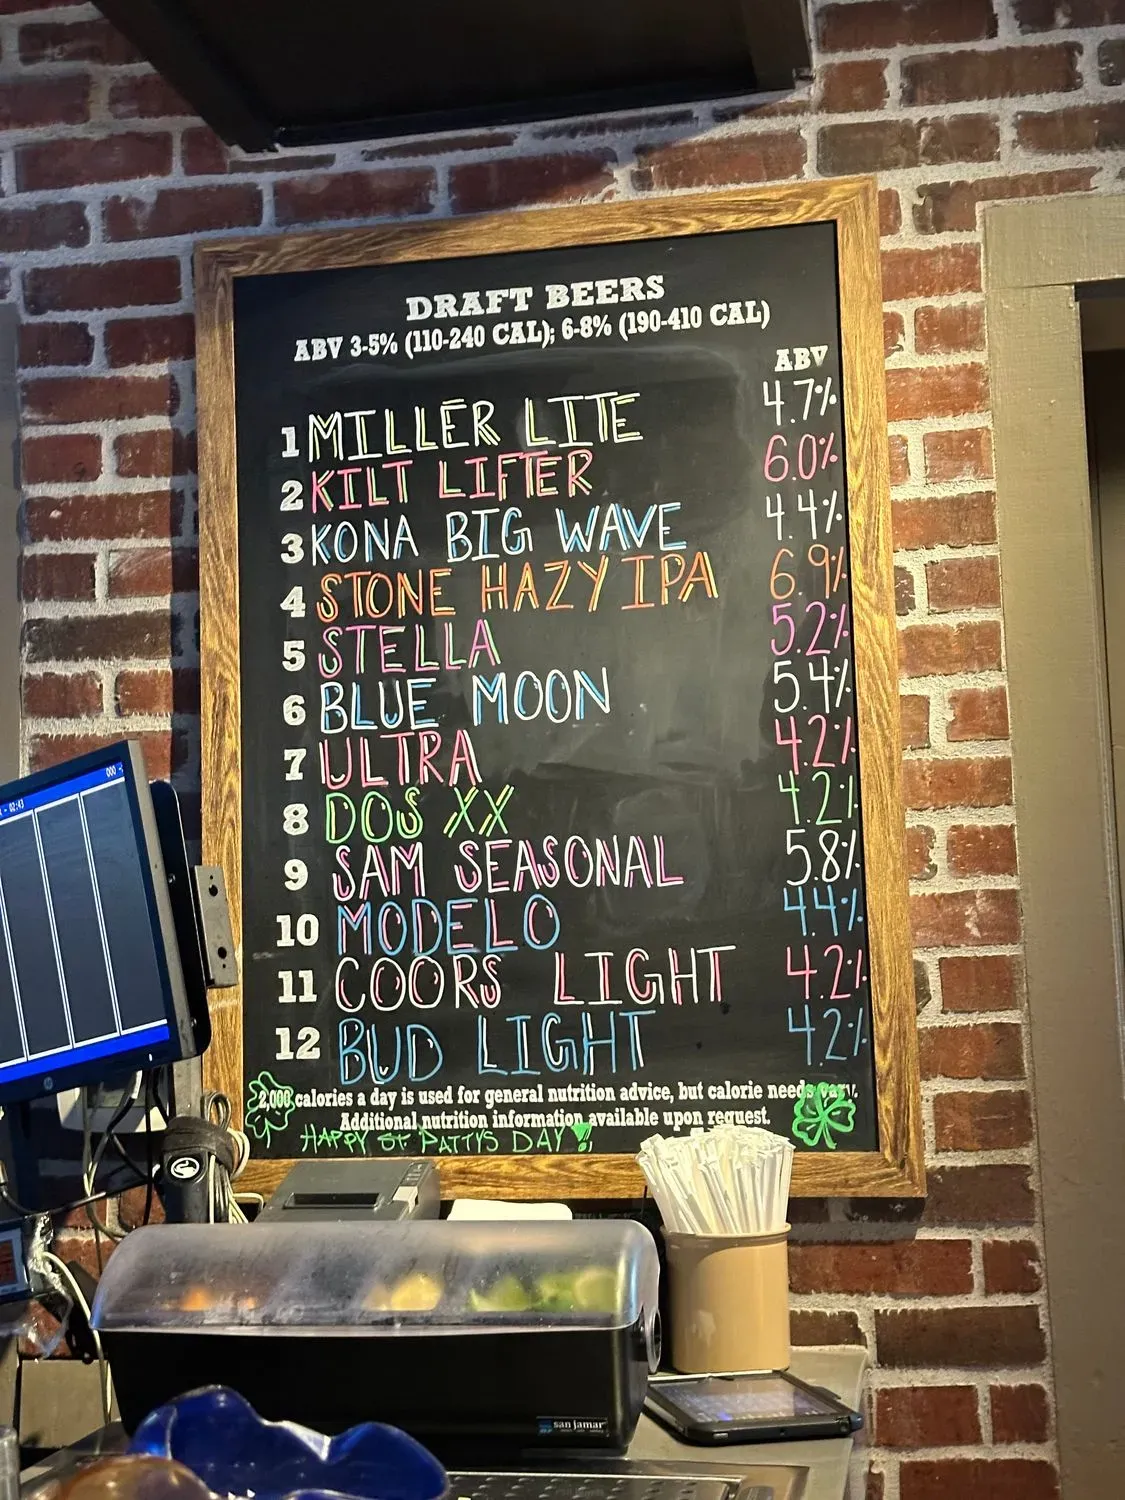 DRAFT BEERS
ABV 3-5% (110-240 CAL); 6-8% (190-410 CAL)
ABV
1 MILLER LITE 4.7%
2 KILT LIFTER 6.0%
3 KONA BIG WAVE 4.4%
4 STONE HAZY IPA 6.9%
5 STELLA 5.2%
6 BLUE MOON 5.4%
7 ULTRA 4.2%
8 DOS XX 4.2%
9 SAM SEASONAL 5.8%
10 MODELO 4.4%
11 COORS LIGHT 4.2%
12 BUD LIGHT 4.2%
2,000 calories a day is used for general nutrition advice, but calorie needs vary.
Additional nutrition information available upon request.
HAPPY ST PATTYS DAY!
000
02:43
hp
san jamar